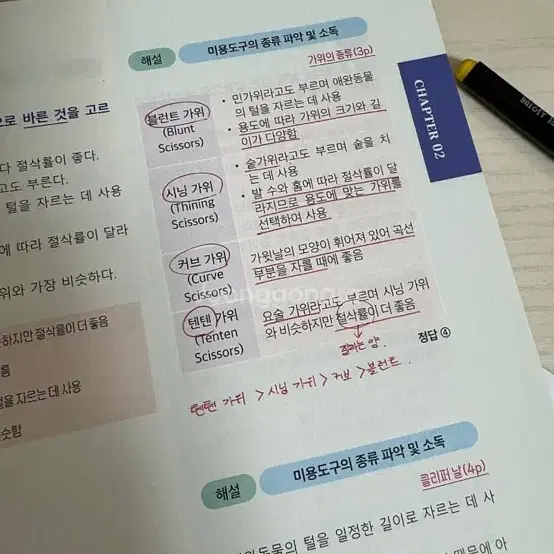 으로 바른 것을 고르
다 절삭률이 좋다.
고도 부른다.
털을 자르는 데 사용
에 따라 절삭률이 달라
위와 가장 비슷하다.
하지만 절삭률이 더 좋음
름
털을 자르는 데 사용
슷함
해설
미용도구의 종류 파악 및 소독
가위의 종류(3p)
블런트 가위
(Blunt
Scissors)
• 민가위라고도 부르며 애완동물
의 털을 자르는 데 사용
• 용도에 따라 가위의 크기와 길
이가 다양함
시닝 가위
(Thining
Scissors)
• 술가위라고도 부르며 숱을 치
는 데 사용
• 발 수와 홈에 따라 절삭률이 달
라지므로 용도에 맞는 가위를
선택하여 사용
커브 가위
(Curve
Scissors)
가윗날의 모양이 휘어져 있어 곡선
부분을 자를 때에 좋음
텐텐 가위
(Tenten
Scissors)
요술 가위라고도 부르며 시닝 가위
와 비슷하지만 절삭률이 더 좋음
잘리는 양.
정답 ④
텐텐 가위 > 시닝 가위 > 커브 > 블런트.
CHAPTER 02
해설
미용도구의 종류 파악 및 소독
클리퍼 날(4p)
동물의 털을 일정한 길이로 자르는 데 사
때문에 아